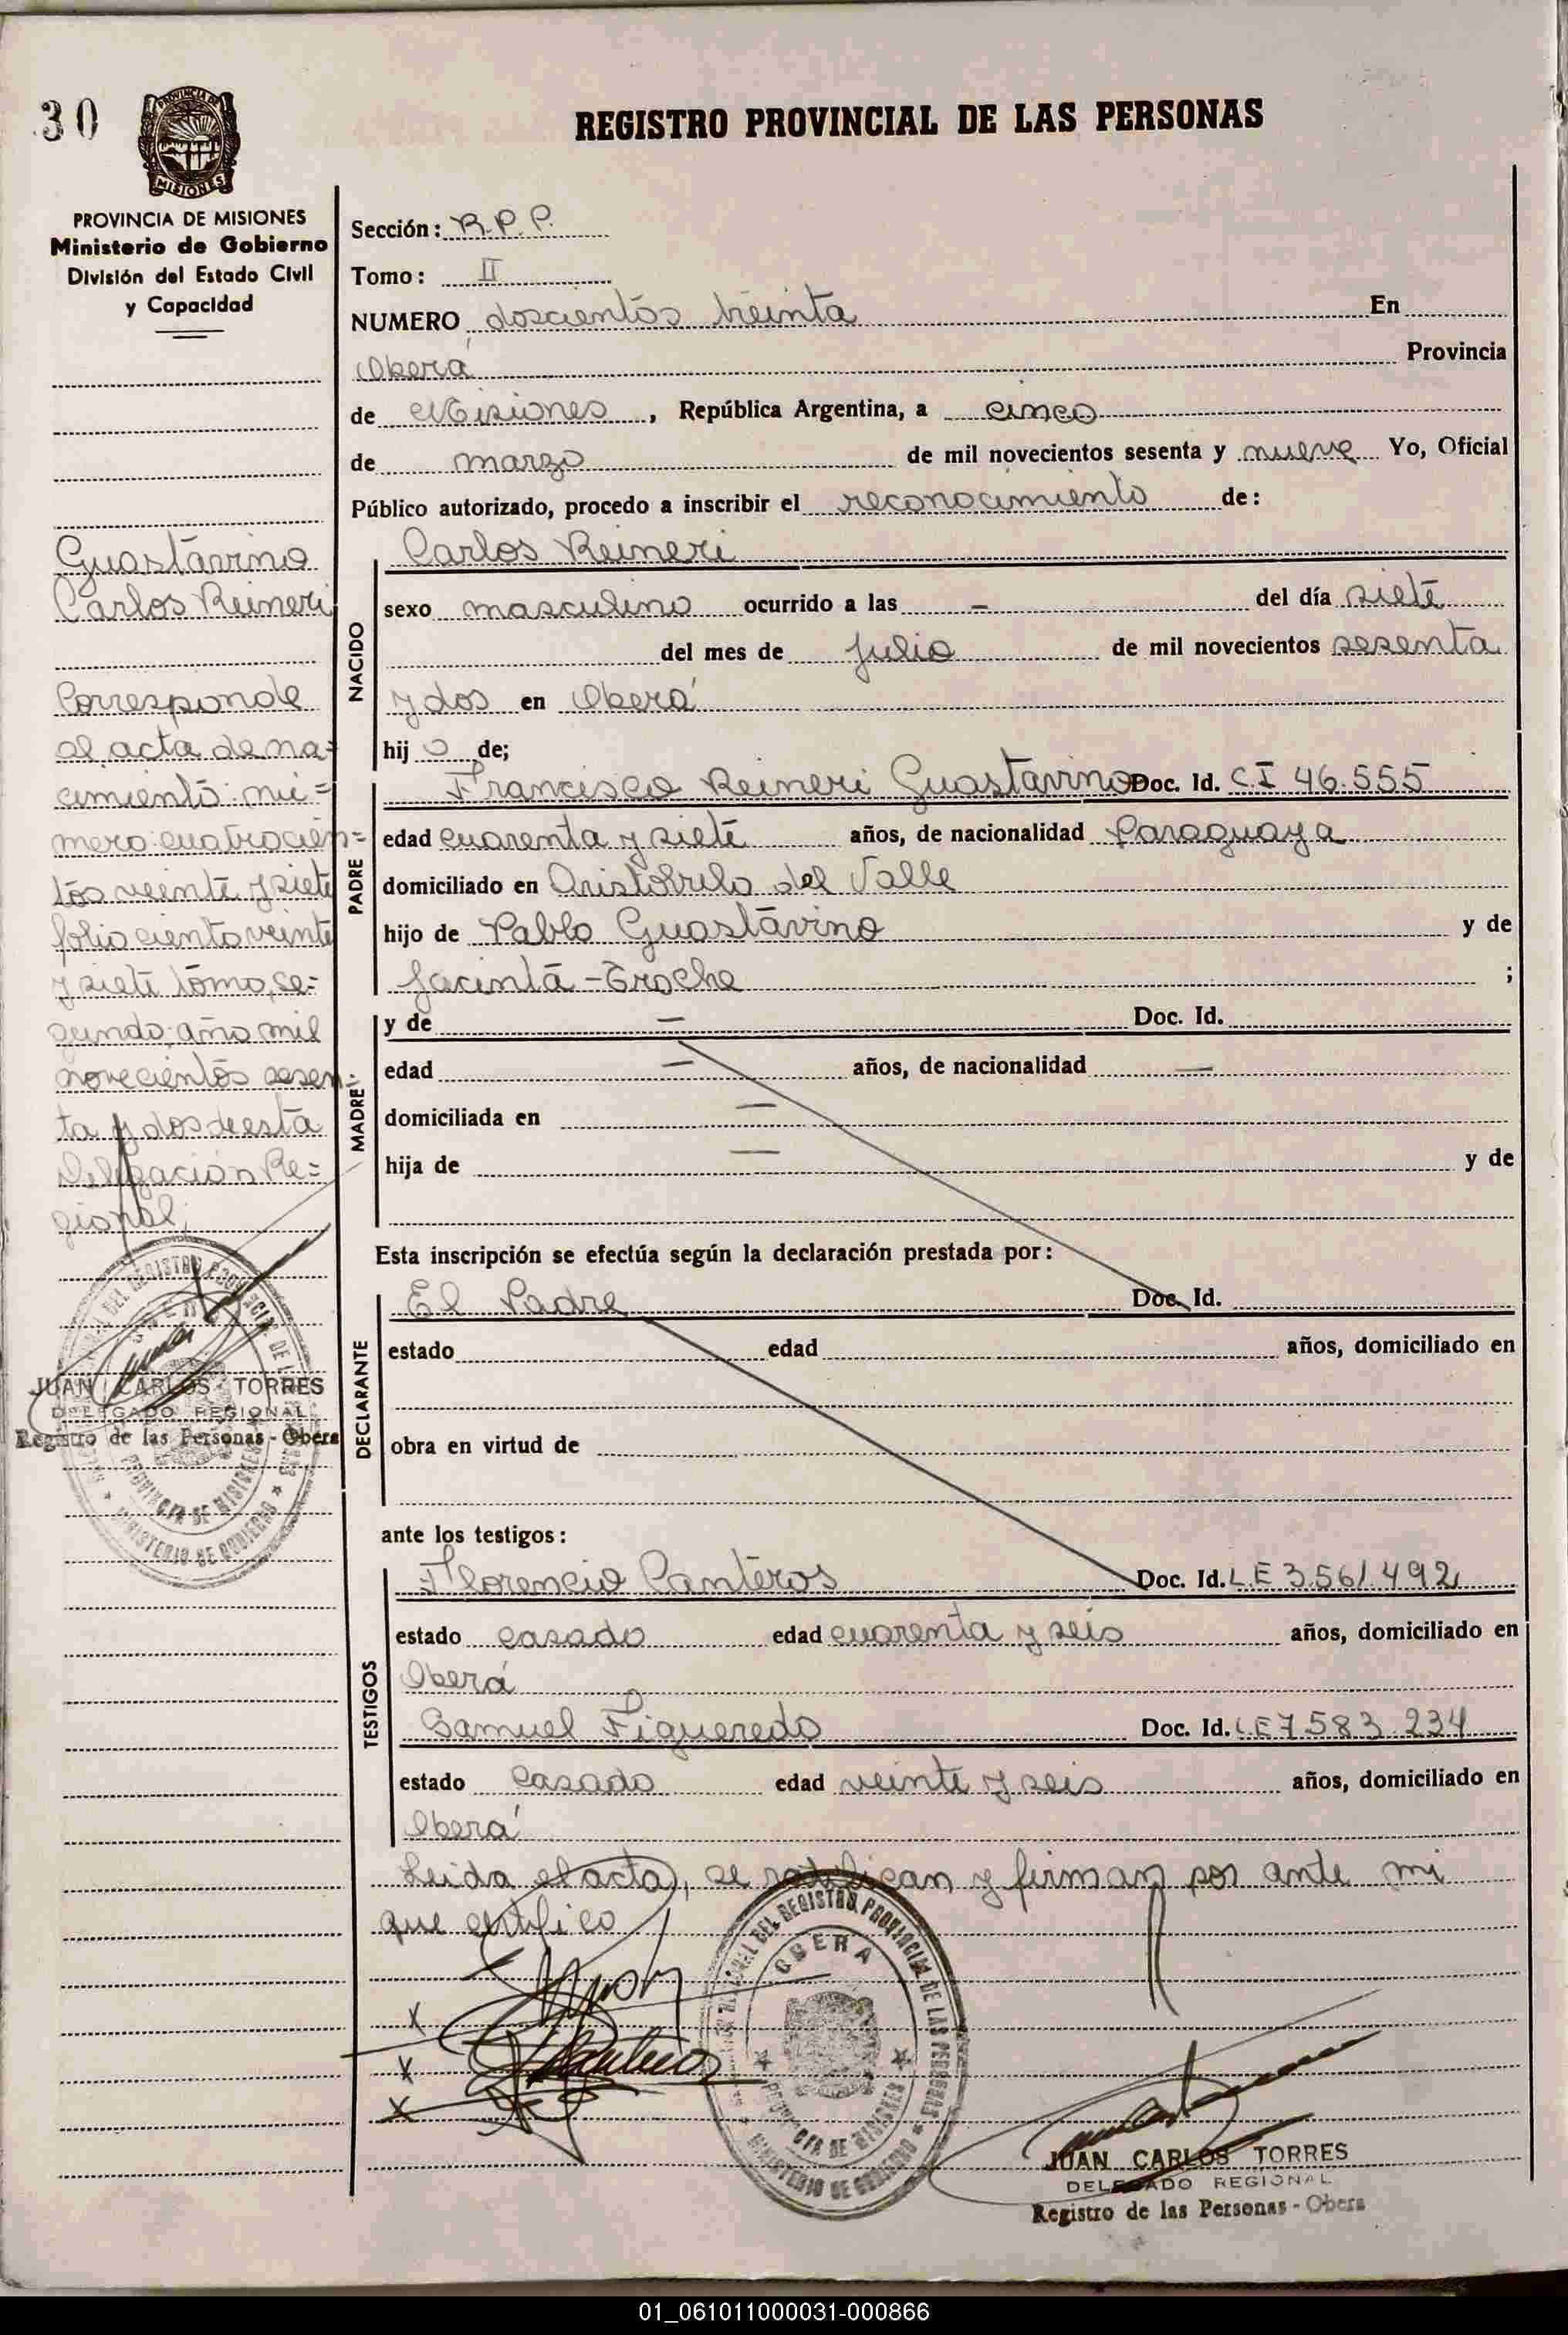 30
PROVINCIA DE
MISIONES
REGISTRO PROVINCIAL DE LAS PERSONAS
PROVINCIA DE MISIONES
Ministerio de Gobierno
División del Estado Civil
y Capacidad
Guastavino
Carlos Reineri
Corresponde
al acta de na=
cimiento: nú=
mero: cuatrocien=
tos veinte y siete
folio ciento veinte
y siete tomo, se=
gundo, año mil
novecientos sesen=
ta y dos de esta
Delegación Re=
gional,
JUAN CARLOS TORRES
DELEGADO REGIONAL
Registro de las Personas - Obera
Sección: R.P.P.
Tomo: II
NUMERO doscientos treinta En
Oberá Provincia
de Misiones, República Argentina, a cinco
de marzo de mil novecientos sesenta y nueve Yo, Oficial
Público autorizado, procedo a inscribir el reconocimiento de:
NACIDO
Carlos Reineri
sexo masculino ocurrido a las — del día siete
del mes de julio de mil novecientos sesenta
y dos en Oberá
hij o de;
PADRE
Francisco Reineri Guastavino Doc. Id. C.I 46.555
edad cuarenta y siete años, de nacionalidad Paraguaya
domiciliado en Aristóbulo del Valle
hijo de Pablo Guastavino y de
Jacinta - Troche ;
MADRE
y de — Doc. Id.
edad — años, de nacionalidad —
domiciliada en —
hija de — y de
Esta inscripción se efectúa según la declaración prestada por:
DECLARANTE
El Padre Doc. Id.
estado edad años, domiciliado en
obra en virtud de
ante los testigos:
TESTIGOS
Florencio Panteros Doc. Id. L E 3.561.492
estado casado edad cuarenta y seis años, domiciliado en
Oberá
Samuel Figueredo Doc. Id. L.E 7.583.234
estado casado edad veinte y seis años, domiciliado en
Oberá
Leida el acta, se ratifican y firman por ante mi
que certifico
OBERA
PROVINCIA DE MISIONES
MINISTERIO DE GOBIERNO
JUAN CARLOS TORRES
DELEGADO REGIONAL
Registro de las Personas - Obera
01_061011000031-000866